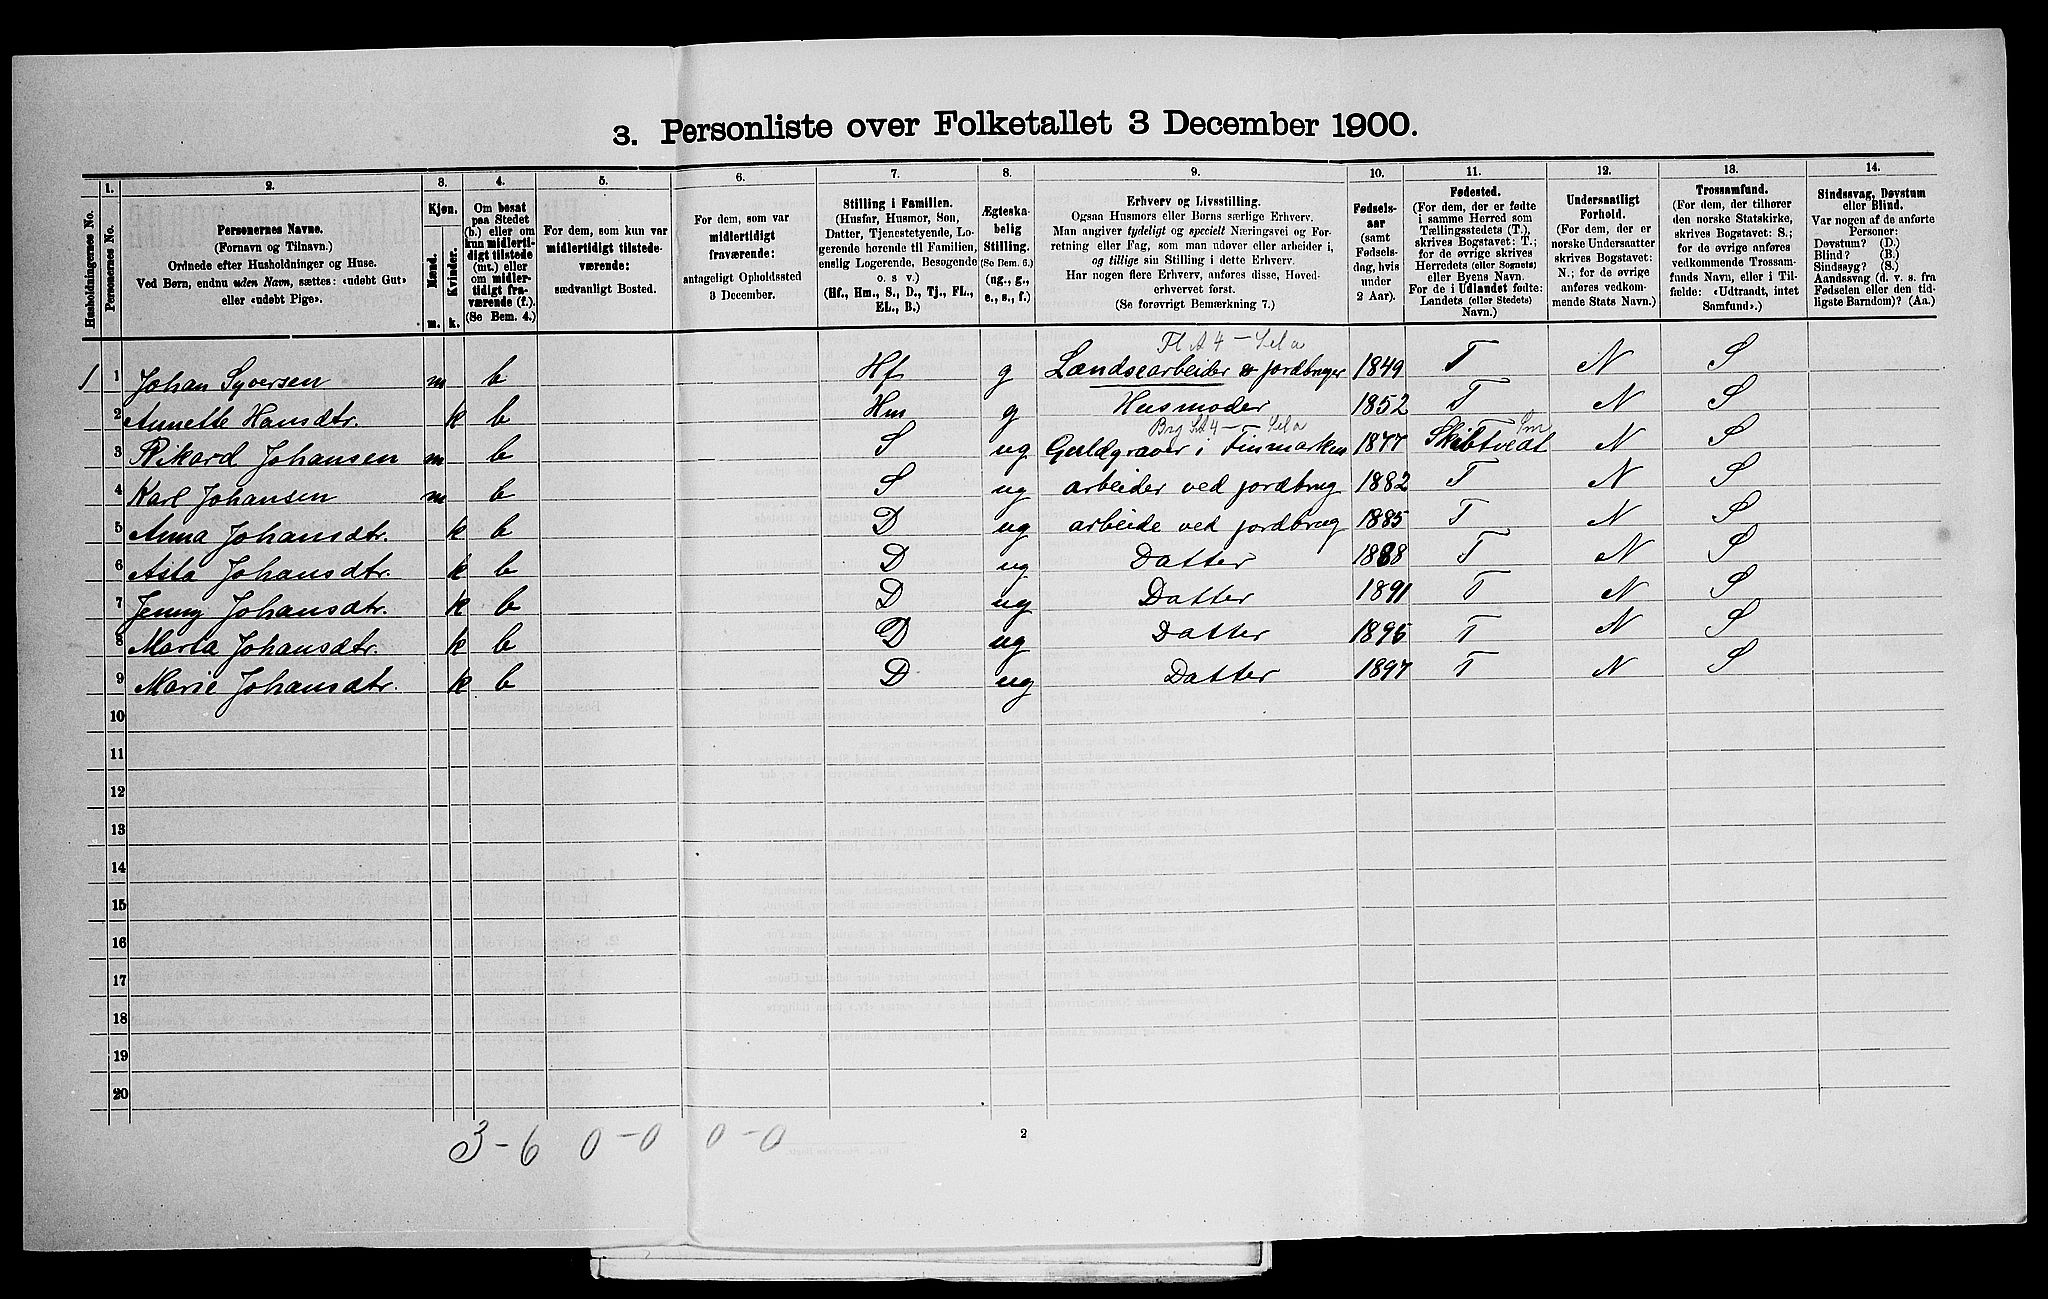 3. Personliste over Folketallet 3 December 1900.
Husholdningernes No.
1. Personernes No.
2. Personernes Navne.
(Fornavn og Tilnavn.)
Ordnede efter Husholdninger og Huse.
Ved Børn, endnu uden Navn, sættes: «udøbt Gut»
eller «udøbt Pige».
3. Kjøn.
Mænd. Kvinder.
m. k.
4. Om bosat
paa Stedet
(b.) eller om
kun midlerti-
digt tilstede
(mt.) eller
om midler-
tidigt fra-
værende (f.).
(Se Bem. 4.)
5. For dem, som kun var
midlertidigt tilstede-
værende:
sædvanligt Bosted.
6. For dem, som var
midlertidigt
fraværende:
antageligt Opholdssted
3 December.
7. Stilling i Familien.
(Husfar, Husmor, Søn,
Datter, Tjenestetyende, Lo-
gerende hørende til Familien,
enslig Logerende, Besøgende
o. s. v.)
(Hf., Hm., S., D., Tj., FL.,
EL., B.)
8. Ægteska-
belig
Stilling.
(Se Bem. 6.)
(ug., g.,
e., s., f.)
9. Erhverv og Livsstilling.
Ogsaa Husmors eller Børns særlige Erhverv.
Man angiver tydeligt og specielt Næringsvei og For-
retning eller Fag, som man udøver eller arbeider i,
og tillige sin Stilling i dette Erhverv.
Har nogen flere Erhverv, anføres disse, Hoved-
erhvervet først.
(Se forøvrigt Bemærkning 7.)
10. Fødsels-
aar
(samt
Fødsels-
dag, hvis
under
2 Aar).
11. Fødested.
(For dem, der er fødte
i samme Herred som
Tællingsstedets (T.),
skrives Bogstavet: T.;
for de øvrige skrives
Herredets (eller Sognets)
eller Byens Navn.
For de i Udlandet fødte:
Landets (eller Stedets)
Navn.)
12. Undersaatligt
Forhold.
(For dem, der er
norske Undersaatter
skrives Bogstavet:
N.; for de øvrige
anføres vedkom-
mende Stats Navn.)
13. Trossamfund.
(For dem, der tilhører
den norske Statskirke,
skrives Bogstavet: S.;
for de øvrige anføres
vedkommende Trossam-
funds Navn, eller i Til-
fælde: «Udtraadt, intet
Samfund».)
14. Sindssvag, Døvstum
eller Blind.
Var nogen af de anførte
Personer:
Døvstum? (D.)
Blind? (B.)
Sindssyg? (S.)
Aandssvag (d. v. s. fra
Fødselen eller den tid-
ligste Barndom)? (Aa.)
1 1 Johan Syversen m b Hf g Lændsearbeider & jordbruger 1849 T N S
2 Annette Hansdtr. k b Hm g Husmoder 1852 T N S
3 Rikard Johansen m b S ug Guldgraver i Finmarken 1877 Skibtvedt N S
4 Karl Johansen m b S ug arbeider ved jordbrug 1882 T N S
5 Anna Johansdtr. k b D ug arbeide ved jordbrug 1885 T N S
6 Asta Johansdtr. k b D ug Datter 1888 T N S
7 Jenny Johansdtr. k b D ug Datter 1891 T N S
8 Marta Johansdtr. k b D ug Datter 1895 T N S
9 Marie Johansdtr. k b D ug Datter 1897 T N S
10
11
12
13
14
15
16
17
18
19
20
3-6 0-0 0-0
2